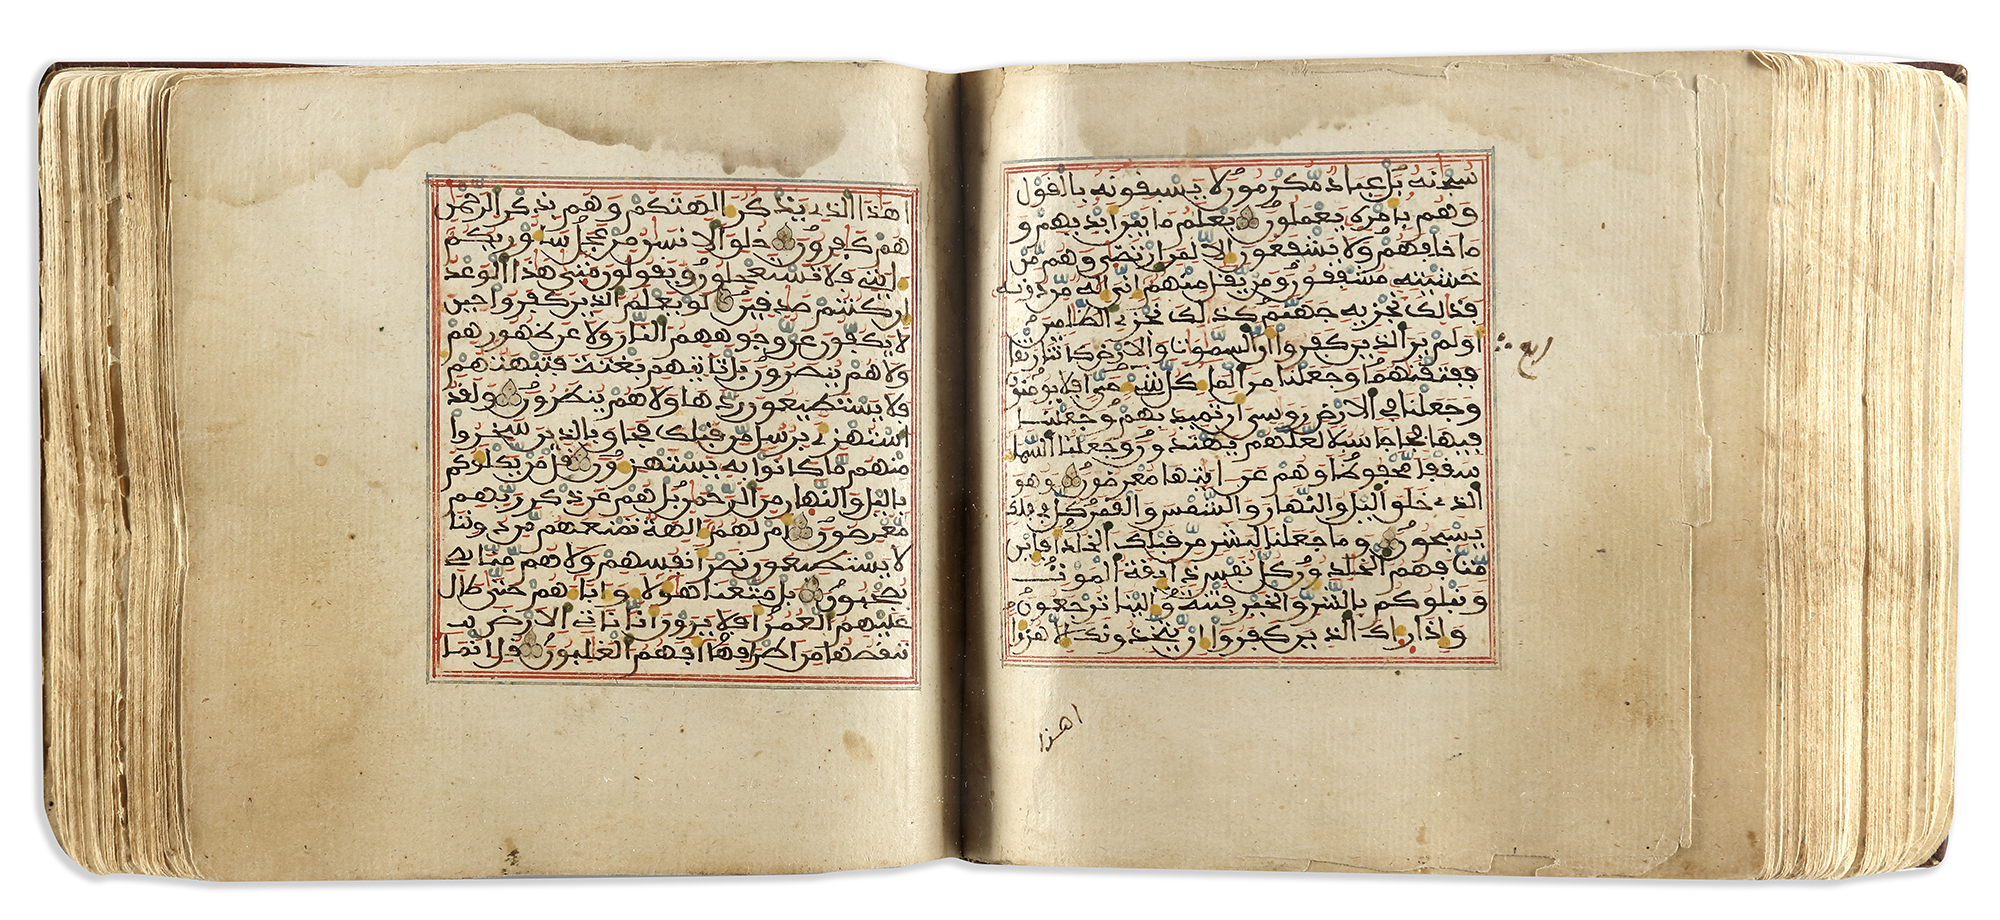 سبحنه بل عباد مكرمون لا يسبقونه بالقول
وهم بأمره يعملون يعلم ما بين أيديهم و
ما خلفهم ولا يشفعون إلا لمن ارتضى وهم من
خشيته مشفقون ومن يقل منهم إني إله من دونه
فذلك نجزيه جهنم كذلك نجزي الظلمين
أولم ير الذين كفروا أن السموات والأرض كانتا رتقا
ففتقنهما وجعلنا من الماء كل شيء حي أفلا يؤمنون
وجعلنا في الأرض روسي أن تميد بهم وجعلنا
فيها فجاجا سبلا لعلهم يهتدون وجعلنا السماء
سقفا محفوظا وهم عن ءايتها معرضون وهو
الذي خلق اليل والنهار والشمس والقمر كل في فلك
يسبحون وما جعلنا لبشر من قبلك الخلد أفإين
مت فهم الخلدون كل نفس ذائقة الموت
ونبلوكم بالشر والخير فتنة وإلينا ترجعون
وإذا رءاك الذين كفروا إن يتخذونك إلا هزؤا
اهذا
أهذا الذي يذكر ءالهتكم وهم بذكر الرحمن
هم كفرون خلق الإنسن من عجل سأوريكم
ءايتي فلا تستعجلون ويقولون متى هذا الوعد
إن كنتم صدقين لو يعلم الذين كفروا حين
لا يكفون عن وجوههم النار ولا عن ظهورهم
ولا هم ينصرون بل تأتيهم بغتة فتبهتهم
فلا يستطيعون ردها ولا هم ينظرون ولقد
استهزئ برسل من قبلك فحاق بالذين سخروا
منهم ما كانوا به يستهزءون قل من يكلؤكم
باليل والنهار من الرحمن بل هم عن ذكر ربهم
معرضون أم لهم ءالهة تمنعهم من دوننا
لا يستطيعون نصر أنفسهم ولا هم منا
يصحبون بل متعنا هؤلاء وءاباءهم حتى طال
عليهم العمر أفلا يرون أنا نأتي الأرض
ننقصها من أطرافها أفهم الغلبون قل إنما